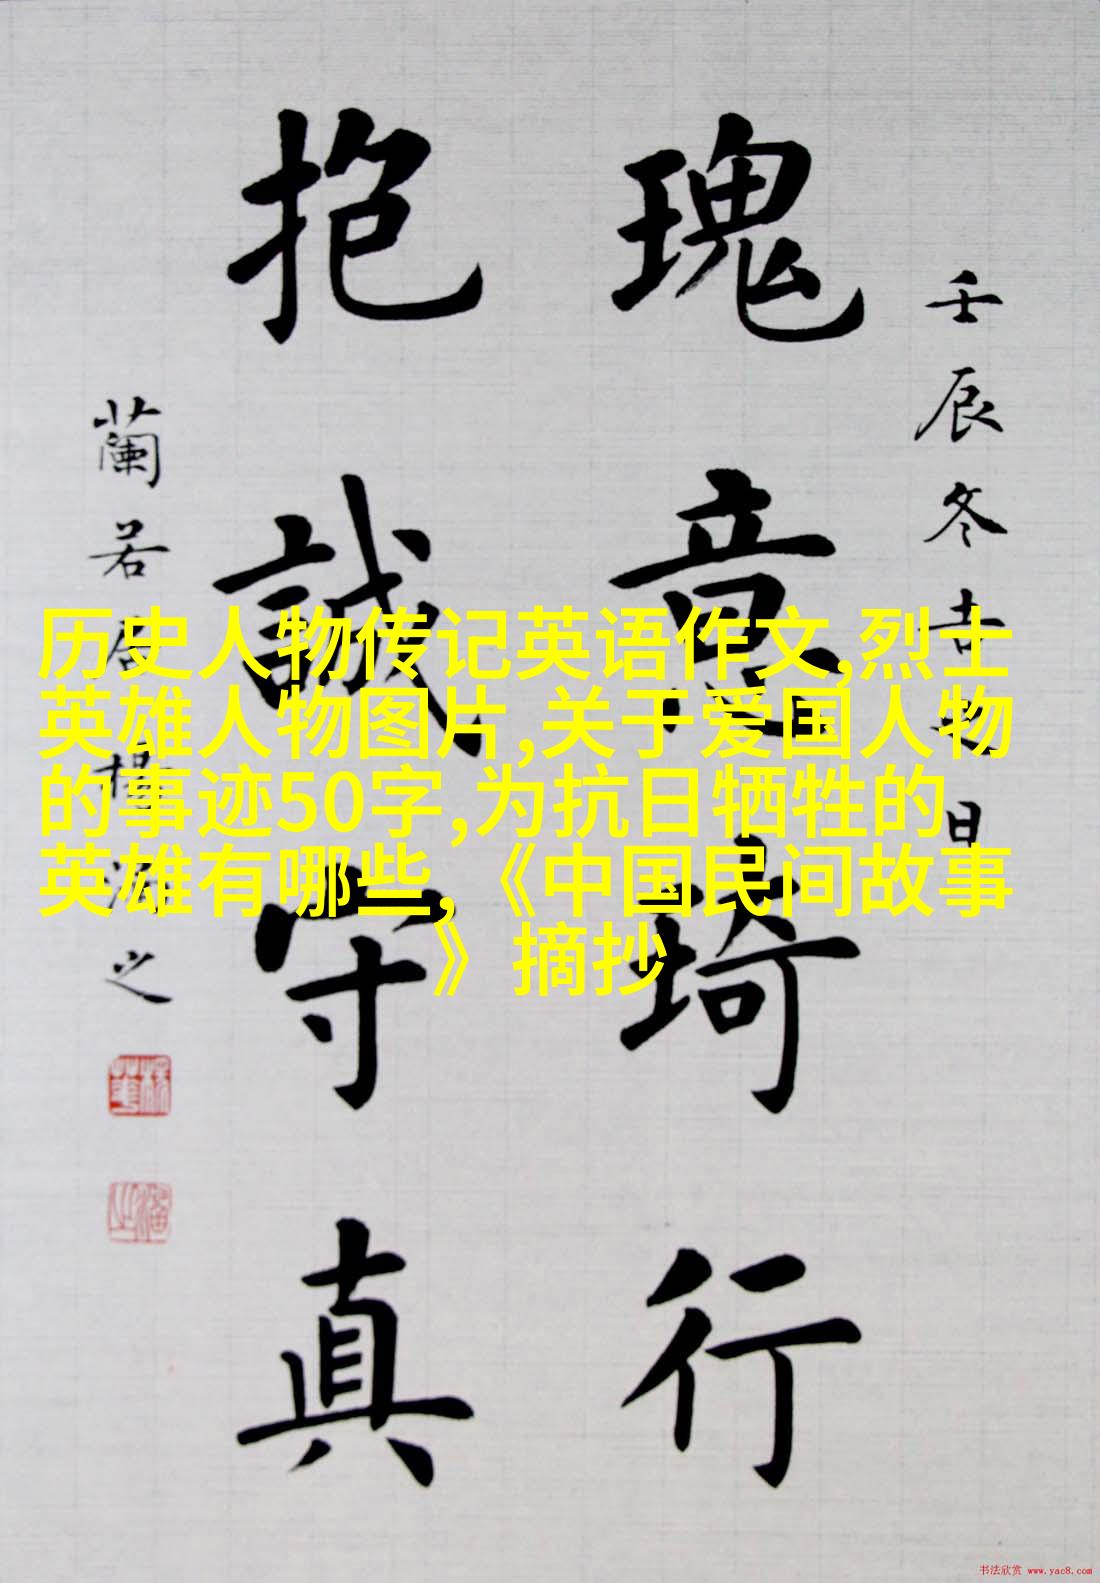 壬辰冬吉
日
瑰意琦行
抱誠守真
蘭若居楊
之
历史人物传记英语作文,烈士
英雄人物图片,关于爱国人物
的事迹50字,为抗日牺牲的
英雄有哪些,《中国民间故事
》摘抄
书法欣赏 www.yac8.com